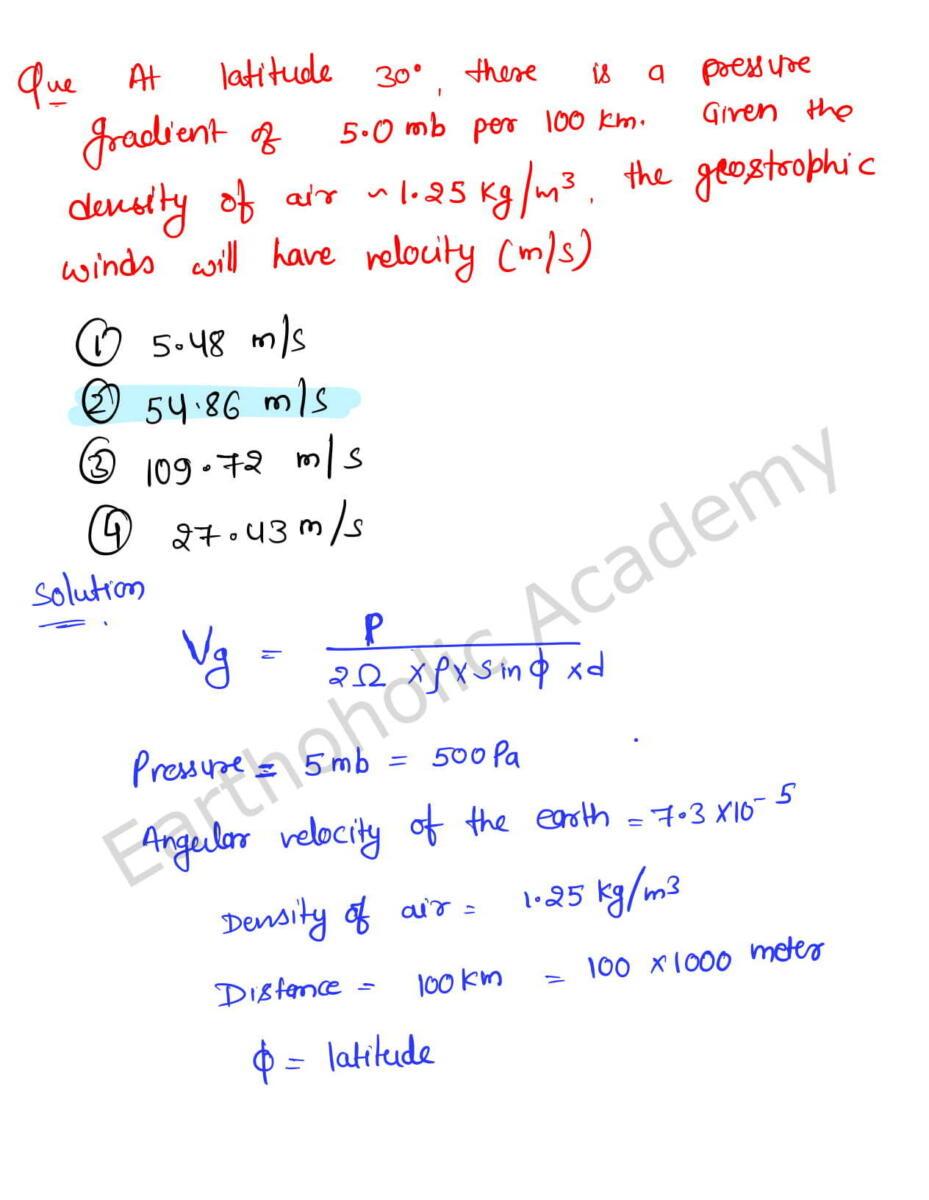 Que At latitude 30°, there is a pressure
gradient of 5.0 mb per 100 km. Given the
density of air ~ 1.25 kg/m³, the geostrophic
winds will have velocity (m/s)
① 5.48 m/s
② 54.86 m/s
③ 109.72 m/s
④ 27.43 m/s
Solution
Vg = P / 2Ω × ρ × sin ϕ × d
Pressure = 5 mb = 500 Pa
Angular velocity of the earth = 7.3 × 10⁻⁵
Density of air = 1.25 kg/m³
Distance = 100 km = 100 × 1000 meter
ϕ = latitude
Earthoholic Academy